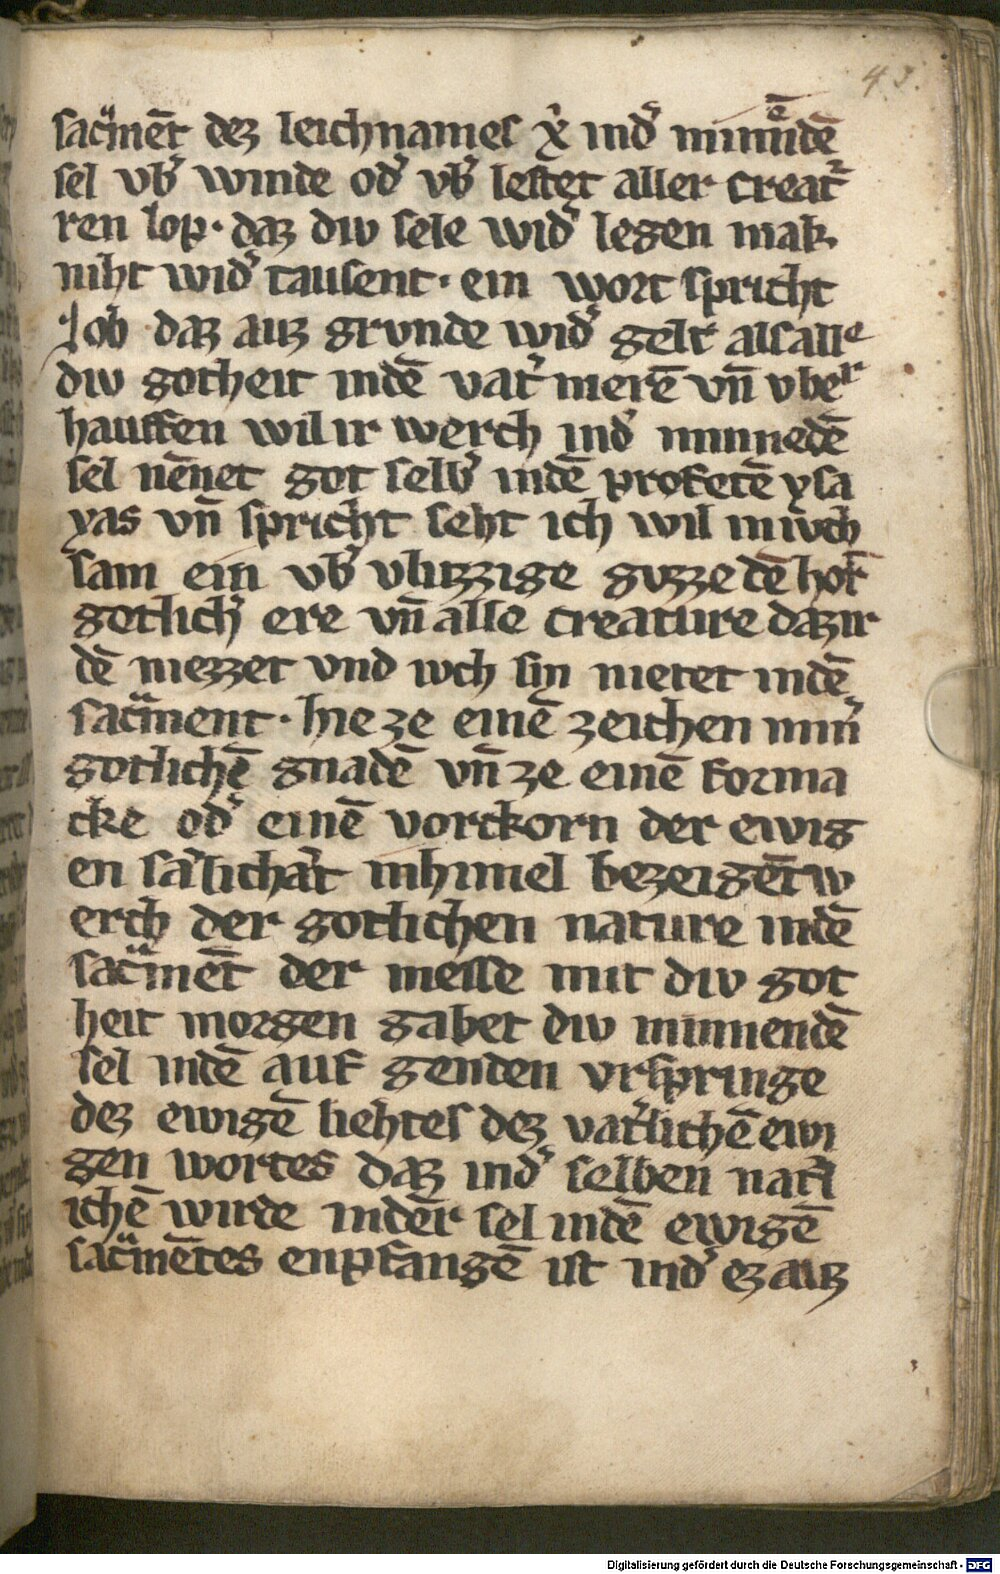 43.
sac̄mēt dez leichnames xͥ indˀ minnēdē
sel vbˀ winde odˀ vbˀ lestet aller creatˀ
ren lop· daz div sele widˀ legen mak
niht widˀ tausent· ein wort spricht
Job daz auz grvnde widˀ gelt als alle
div gotheit indē vatˀ merē vn̄ vber
hauffen wil ir werch indˀ minnedē
sel nēnet got selbˀ indē profetē ysa
yas vn̄ spricht seht ich wil in ivch
sam ein vbˀ vluzzige guzze dē hof
gotlichˀ ere vn̄ alle creature daz ir
dē niezzet vnd iwch sin nietet indē
sacͣment· hie ze einē zeichen minˀ
gotlichē gnadē vn̄ ze einē forma
cke odˀ einē vorckorn der ewig
en sålichåt inhimel bezeigēt w
erch der gotlichen nature indē
sacͣmēt der messe mit div got
heit morgen gabet div minnendē
sel indē auf genden vrspringe
dez ewigē liehtes dez vatˀlichē ewi
gen wortes daz indˀ selben natˀl
ichē wirde indēr sel indē ewigē
sacͣmētes enpfangē ist indˀ ez auz
Digitalisierung gefördert durch die Deutsche Forschungsgemeinschaft - DFG